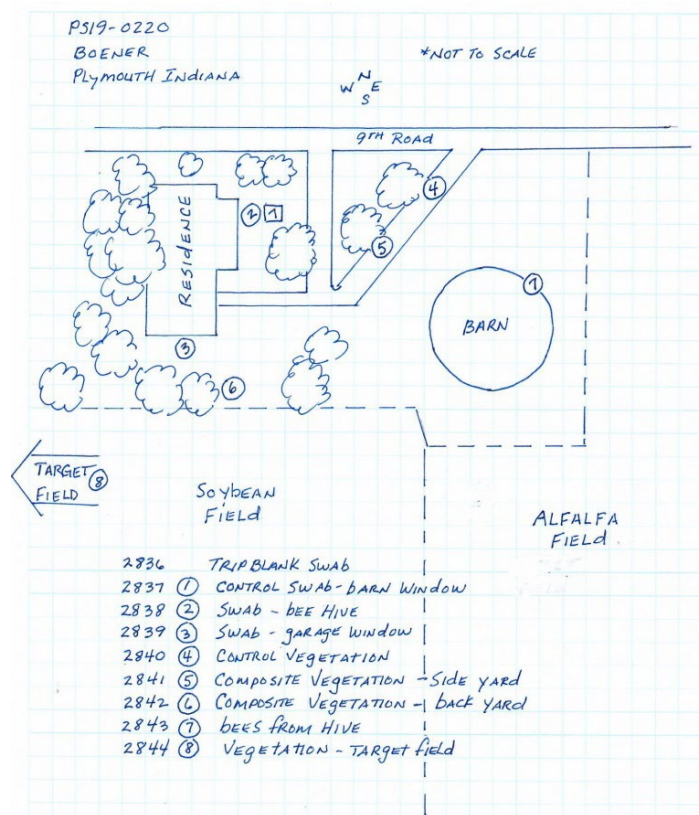 PS19-0220
BOENER
PLYMOUTH INDIANA
*NOT TO SCALE
N
W E
S
9TH ROAD
4
2 7
5
RESIDENCE
1
BARN
3
6
TARGET
FIELD 8
SOYBEAN
FIELD
ALFALFA
FIELD
2836 TRIP BLANK SWAB
2837 1 CONTROL SWAB - BARN WINDOW
2838 2 SWAB - BEE HIVE
2839 3 SWAB - GARAGE WINDOW
2840 4 CONTROL VEGETATION
2841 5 COMPOSITE VEGETATION - SIDE YARD
2842 6 COMPOSITE VEGETATION - BACK YARD
2843 7 BEES FROM HIVE
2844 8 VEGETATION - TARGET FIELD